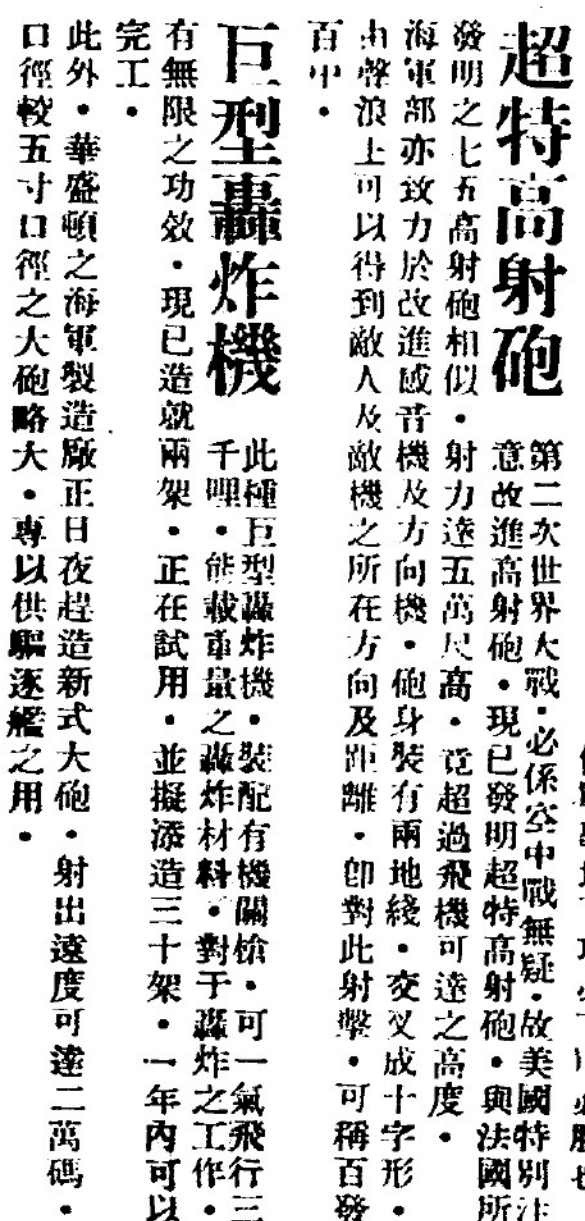 超特高射砲
第二次世界大戰・必係空中戰無疑・故美國特別注
意改進高射砲・現已發明超特高射砲・與法國所
發明之七五高射砲相似・射力達五萬尺高・竟超過飛機可達之高度・
海軍部亦致力於改進感音機及方向機・砲身裝有兩地綫・交叉成十字形・
由聲浪上可以得到敵人及敵機之所在方向及距離・卽對此射擊・可稱百發
百中・
巨型轟炸機
此種巨型轟炸機・裝配有機關槍・可一氣飛行三
千哩・能載重量之轟炸材料・對于轟炸之工作・
有無限之功效・現已造就兩架・正在試用・並擬添造三十架・一年內可以
完工・
此外・華盛頓之海軍製造廠正日夜趕造新式大砲・射出遠度可達二萬碼・
口徑較五寸口徑之大砲略大・專以供驅逐艦之用・